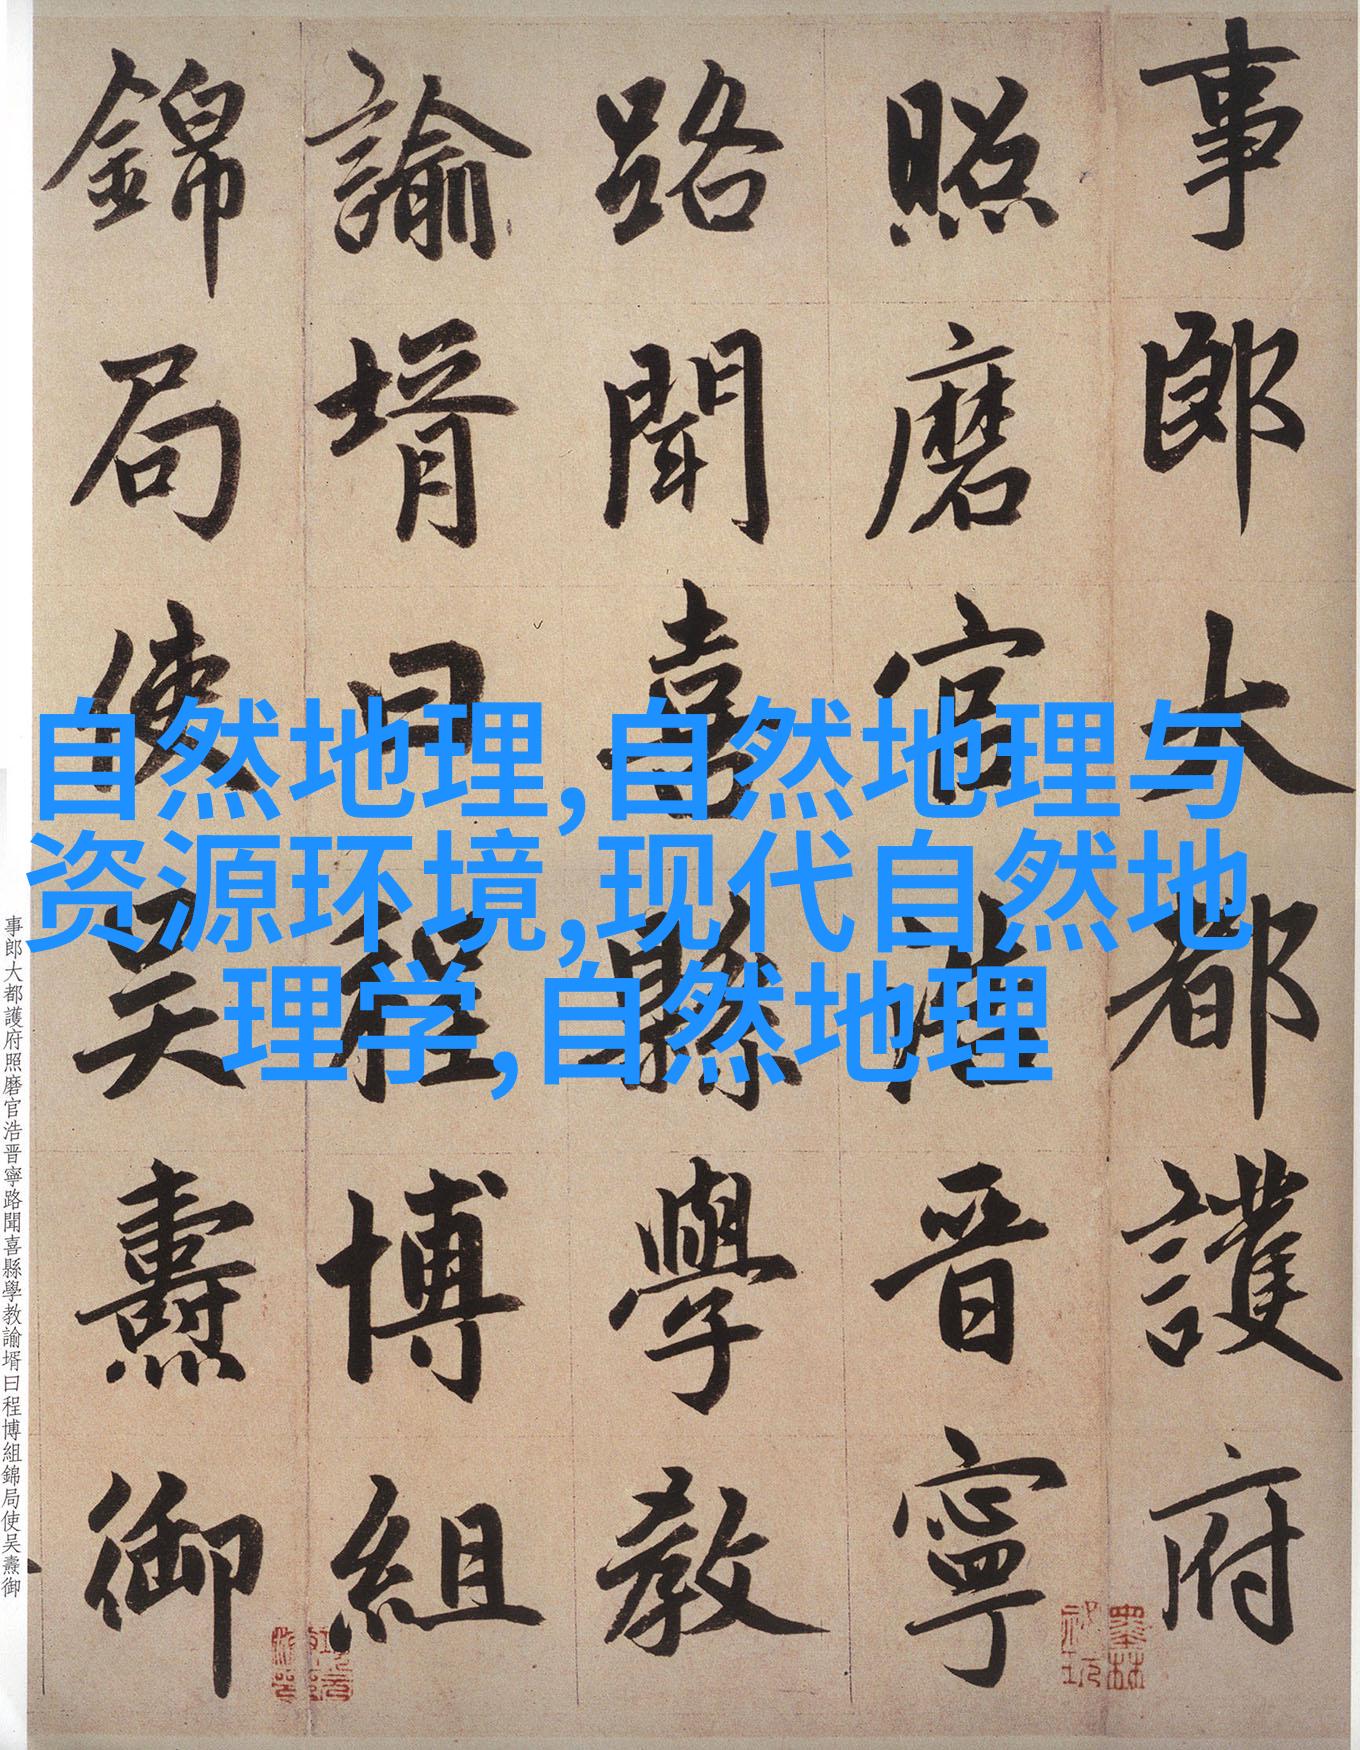 事郎大都護府
照磨官浩晋寧
路聞喜縣學教
諭壻曰程博組
錦局使吴燾御
自然地理,自然地理与
资源环境,现代自然地
理学,自然地理
事郎大都護府照磨官浩晋寧路聞喜縣學教諭壻曰程博組錦局使吴燾御